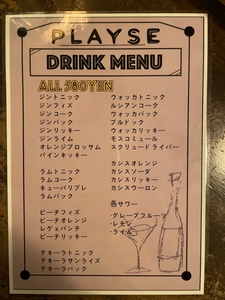 PLAYSE
DRINK MENU
ALL 580YEN
ジントニック
ジンフィズ
ジンコーク
ジンバック
ジンリッキー
ジンライム
オレンジブロッサム
パインキッキー
ラムトニック
ラムコーク
キューバリブレ
ラムバック
ピーチフィズ
ピーチオレンジ
レゲエパンチ
ピーチリッキー
テキーラトニック
テキーラサンライズ
テキーラバック
ウォッカトニック
ルシアンコーク
ウォッカバック
ブルドック
ウォッカリッキー
モスコミュール
スクリュードライバー
カシスオレンジ
カシスソーダ
カシスコーク
カシスリッキー
カシスウーロン
各サワー
・グレープフルーツ
・レモン
・ライム